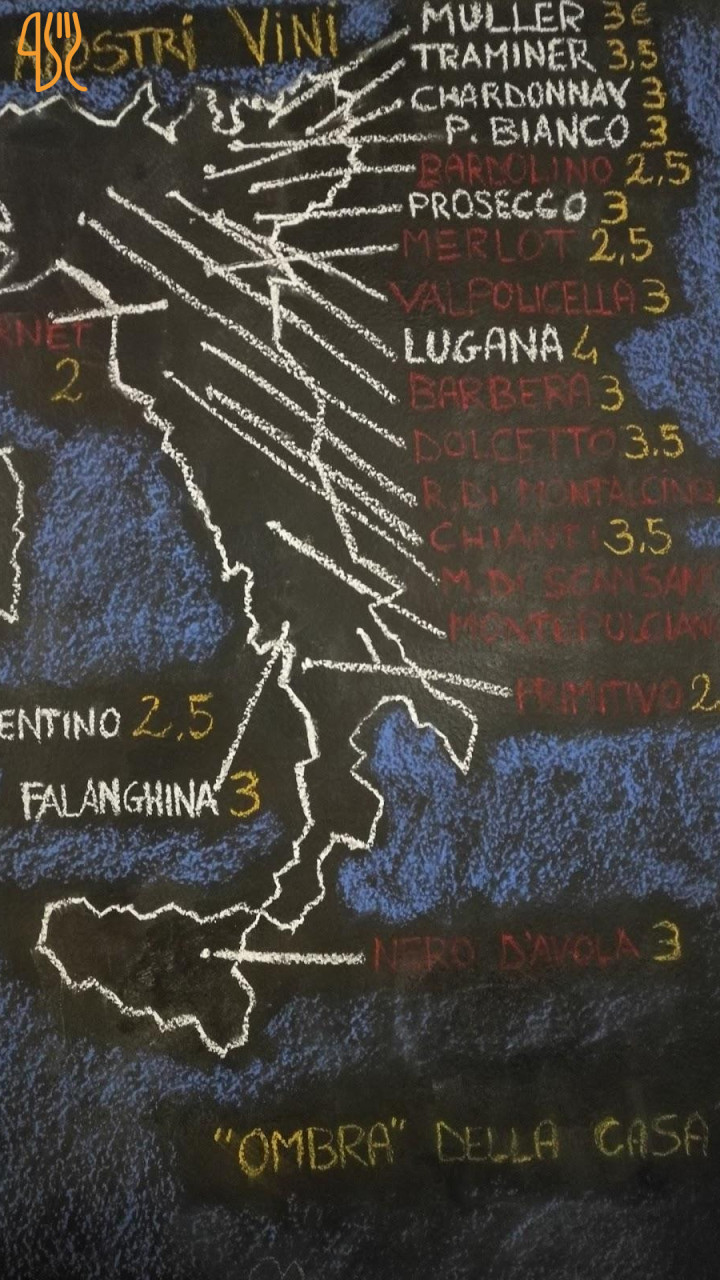 NOSTRI VINI
MULLER 3€
TRAMINER 3,5
CHARDONNAY 3
P. BIANCO 3
BARDOLINO 2,5
PROSECCO 3
MERLOT 2,5
VALPOLICELLA 3
RNET
2
LUGANA 4
BARBERA 3
DOLCETTO 3.5
R. DI MONTALCINO
CHIANTI 3,5
M. DI SCANSAN
MONTEPULCIAN
PRIMITIVO 2
ENTINO 2,5
FALANGHINA 3
NERO D'AVOLA 3
"OMBRA" DELLA CASA